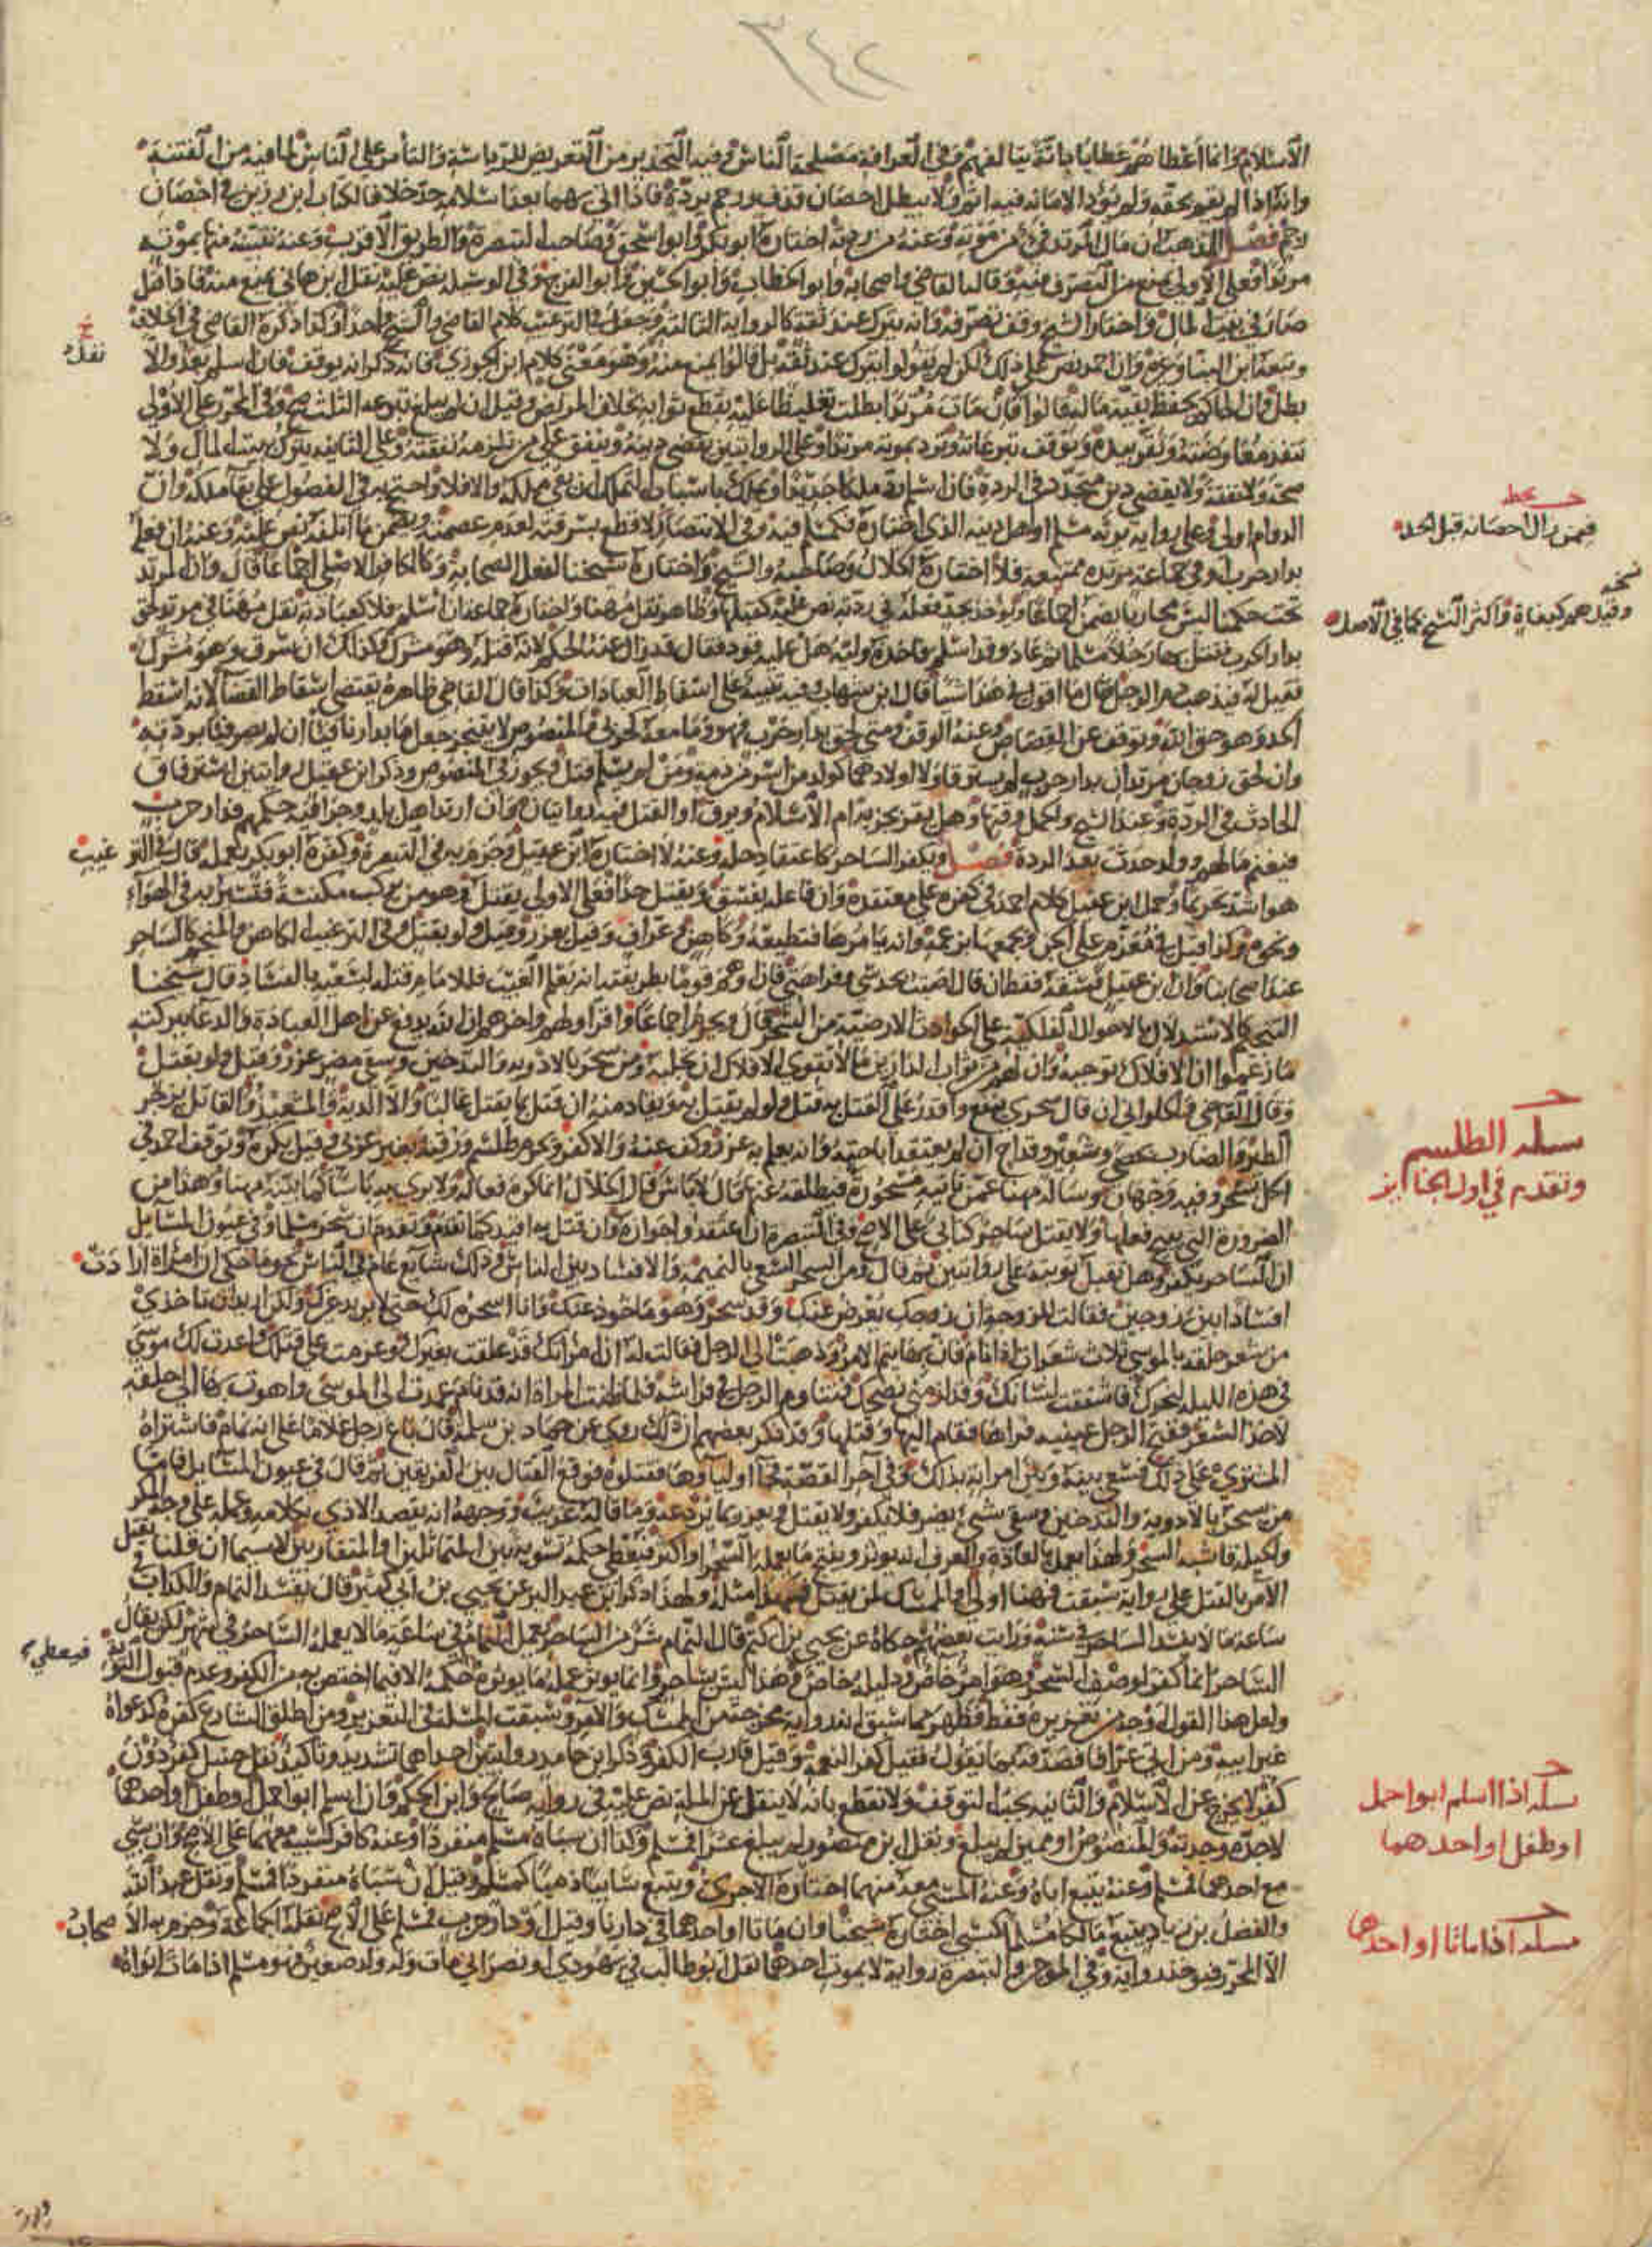 ٣٤٢
الاسلام وانما اعطاهم عطايا باتة يتالفهم وفي العرافة مصلحة الناس وفيه التحذير من التعريض للرياسة والتأمر على الناس لما فيه من الفتنة
وانه اذا لم يقم بحقه ولم يؤد الامانة فيه اثم ولا يبطل احصان قذف ورجم بردة فاذا اتى بهما بعد اسلامه حد خلافا لكتاب ابن رزين في احصان
رجم فصل المذهب ان مال المرتد فيء من موته وعنه من ردته اختاره ابو بكر وابو اسحق وصاحب التبصرة والطريق الاقرب وعنه نتبينه منها بموته
مرتدا فعلى الاولى يمنع من التصرف فيه وقاله القاضي واصحابه وابو الخطاب وابو الحسين وابو الفرج وفي الوسيلة نص عليه نقل ابن هانئ يمنع منه فاذا قتل
صار في بيت المال واختار الشيخ وقف تصرفه وانه يترك عند ثقة كالرواية الثالثة وجعل في الترغيب كلام القاضي والشيخ واحدا وكذا ذكره القاضي في الخلاف
خ
نقله
وتبعه ابن البنا وغيره وان احمد نص على ذلك لكن لم يقولوا يترك عند ثقة بل قالوا يمنع منه وهو معنى كلام ابن الجوزي فانه ذكر انه يوقف فان اسلم بعد والا
بطل وان الحاكم يحفظ بقية ماله قالوا فان مات مرتدا بطلت تغليظا عليه بقطع ثوابه بخلاف المريض وقيل ان لم يبلغ تبرعه الثلث صح وفي المحرر على الاولى
تنفذ معاوضته وتقر بيده وتوقف تبرعاته وترد بموته مرتدا وعلى الروايتين يقضي دينه وينفق على من تلزمه نفقته وعلى الثانية يترك ببيت المال ولا
صحة ولا نفقة ولا يقضي دين متجدد في الردة فان اسلم قدر ملكا جديدا ويملك باسباب التملك ان بقي ملكه والا فلا واحتج به في الفصول على بقاء ملكه وان
ح بخط
فيمن زال احصانه قبل الحد
الدوام اولى وعلى رواية يرثه مسلم او اهل دينه الذي اختاره فكمسلم فيه وفي الانتصار لا قطع بسرقته لعدم عصمته ويضمن ما اتلفه نص عليه وعنه ان فعله
بدار حرب او في جماعة مرتدة ممتنعة فلا اختاره الخلال وصاحبه والشيخ واختاره شيخنا لفعل الصحابة وكالكافر الاصلي اجماعا قال وان المرتد
تحت حكمنا ليس محاربا يضمن اجماعا ويؤخذ بحد فعله في ردته نص عليه كقبلها وظاهر نقل مهنا واختاره جماعة ان اسلم فلا كعبادته نقل مهنا في مرتد لحق
نسخه
وقيل هم كبغاة واكثر النسخ كما في الاصل
بدار الحرب فقتل بها رجلا مسلما ثم عاد وقد اسلم فاخذه وليه هل عليه قود فقال قد زال عنه الحكم لانه قتله وهو مشرك وكذلك ان سرق وهو مشرك
فقيل له فيذهب دم الرجل قال ما اقول في هذا شيا قال ابن شهاب وفيه تنبيه على اسقاط العبادات وكذا قال القاضي ظاهره يقتضي اسقاط القضاء لانه اسقط
الحد وهو حق الله وتوقف عن القصاص وعنه الوقف ومتى لحق بدار حرب فهو وما معه كحربي والمنصوص لا يتنجز جعل ما بدارنا فيئا ان لم يصر فيئا بردته
وان لحق زوجان مرتدان بدار حرب لم يسترقا ولا اولادهما كولد من اسلم من ذمة ومن لم يسلم قتل ويجوز في المنصوص وذكر ابن عقيل روايتين استرقاق
الحادث في الردة وعند الشيخ والحمل وقتها وهل يقر بجزية ام الاسلام ويرق او القتل فيه روايتان وان ارتد اهل بلد وجرى فيه حكمهم فدار حرب
فيغنم مالهم وولد حدث بعد الردة فصل ويكفر الساحر كاعتقاد حله وعنه لا اختاره ابن عقيل وجزم به في التبصرة وكفره ابو بكر بعمله قال في الترغيب
هو اشد تحريما وحمل ابن عقيل كلام احمد في كفره على معتقده وان فاعله يفسق ويقتل حدا فعلى الاولى يقتل وهو من يركب مكنسة فتسير به في الهواء
ونحوه وكذا قيل في معزم على الجن ويجمعها بزعمه وانه يامرها فتطيعه وكاهن وعراف وقيل يعزر وقيل ولو بقتل وفي الترغيب الكاهن والمنجم كالساحر
عند اصحابنا وان ابن عقيل فسقه فقط ان قال اصبت بحدسي وفراهتي فان اوهم قوما بطريقته انه يعلم الغيب فللامام قتله لسعيه بالفساد قال شيخنا
التنجيم كالاستدلال بالاحوال الفلكية على الحوادث الارضية من السحر قال ويحرم اجماعا واقر اولهم واخرهم ان الله يدفع عن اهل العبادة والدعا ببركته
ما زعموا ان الافلاك توجبه وان لهم من ثواب الدارين ما لا تقوى الافلاك ان تجلبه ومن سحر بالادوية والتدخين وسقي مضر عزر وقيل ولو بقتل
وقال القاضي والحلواني ان قال سحري ينفع واقدر على القتل به قتل ولو لم يقتل به ويقاد منه ان قتل بما يقتل غالبا والا الدية والمشعبذ والقائل بزجر
ح
مسئلة الطلسم
وتقدم في اول الجنايز
الطير والضارب بحصى وشعير وقداح ان لم يعتقد اباحته وانه يعلم به عزر وكف عنه والا كفر ويحرم طلسم ورقية بغير عربي وقيل يكره وتوقف احمد في
الحل بسحر وفيه وجهان وساله مهنا عمن تاتيه مسحورة فيطلقه عنها قال لا باس قال الخلال انما كره فعاله ولا يرى به باسا كما بينه مهنا وهذا من
الضرورة التي تبيح فعلها ولا يقتل ساحر كتابي على الاصح وفي التبصرة ان اعتقدوا جوازه وان قتل به اقيد كما تقدم وتقدم ان سحر مسلما وفي عيون المسايل
ان الساحر يكفر وهل تقبل توبته على روايتين ثم قال ومن السحر السعي بالنميمة والافساد بين الناس وذلك شايع عام في الناس نحو ما حكي ان امراة ارادت
افسادا بين زوجين فقالت للزوجة ان زوجك يعرض عنك وقد سحر وهو ماخوذ عنك وانا اسحره لك حتى لا يريد غيرك ولكن اريد ان تاخذي
من شعر حلقه بالموسى ثلاث شعرات اذا نام فان بها يتم الامر وذهبت الى الرجل فقالت له ان امراتك قد علقت بغيرك وعزمت على قتلك واعدت لك موسى
في هذه الليلة لنحرك فاشفقت لشانك وقد لزمني نصحك فتناوم الرجل في فراشه فلما ظنت المراة انه قد نام عمدت الى الموسى واهوت بها الى حلقه
لاخذ الشعر ففتح الرجل عينيه فراها فقام اليها وقتلها وقد ذكر بعضهم ان ذلك روي عن حماد بن سلمة قال باع رجل غلاما على انه نمام فاشتراه
المشتري على ذلك فسعى بينه وبين امراته بذلك وفي آخر القصة فجا اولياوها فقتلوه فوقع القتال بين الفريقين ثم قال في عيون المسايل فاما
من يسحر بالادوية والتدخين وسقي شيء يضر فلا يكفر ولا يقتل ويعزر بما يردعه وما قاله غريب ووجهه انه يقصد الاذى بكلامه وعمله على وجه المكر
والحيلة فاشبه السحر ولهذا يعلم بالعادة والعرف انه يوثر وينتج ما يعمله السحر او اكثر فيعطى حكمه تسوية بين المتماثلين او المتقاربين لا سيما ان قلنا يقتل
الآمر بالقتل على رواية سبقت فهنا اولى او الممسك لمن يقتل فهذا مثله ولهذا ذكر ابن عبد البر عن يحيى بن ابي كثير قال يفسد النمام والكذاب في
ساعة ما لا يفسد الساحر في سنة ورايت بعضهم حكاه عن يحيى بن اكثم قال النمام شر من الساحر يعمل النمام في ساعة ما لا يعمله الساحر في شهر لكن يقال
الساحر انما كفر لوصف السحر وهو امر خاص ودليله خاص وهذا ليس بساحر وانما يوثر عمله ما يوثره فيعطى حكمه الا فيما اختص به من الكفر وعدم قبول التوبة
ولعل هذا القول اوجه من تعزيره فقط فظهر مما سبق انه رواية مخرجة من الممسك والآمر وسبقت المسئلة في التعزير ومن اطلق الشارع كفره كدعواه
غير ابيه ومن اتى عرافا فصدقه بما يقول فقيل كفر النعمة وقيل قارب الكفر وذكر ابن حامد روايتين احداهما تشديد وتاكيد نقل حنبل كفر دون
ح
مسئلة اذا اسلم ابوا حمل
او طفل او احدهما
كفر لا يخرج عن الاسلام والثانية يجب التوقف ولا نقطع بانه لا ينقل عن الملة نص عليه في رواية صالح وابن الحكم وان اسلم ابوا حمل او طفل او احدهما
لا جده وجدته والمنصوص او مميز لم يبلغ ونقل ابن منصور لم يبلغ عشرا فمسلم وكذا ان سباه مسلم منفردا وعنه كافر كسبيه معهما على الاصح وان سبي
مع احدهما فمسلم وعنه يتبع اباه وعنه المسبي معه منهما اختاره الآجري ويتبع سابيا ذميا كمسلم وقيل ان سباه منفردا فمسلم ونقل عبد الله
ح
مسئلة اذا ماتا او احدهما
والفضل بن زياد يتبع مالكا مسلما كسبي اختاره شيخنا وان ماتا او احدهما في دارنا وقيل او دار حرب فمسلم على الاصح نقله الجماعة وجزم به الاصحاب
الا المحرر فبوخذ رواية وفي الموجز والتبصرة رواية لا بموت احدهما نقل ابو طالب في يهودي او نصراني مات وله ولد صغير فهو مسلم اذا مات ابواه